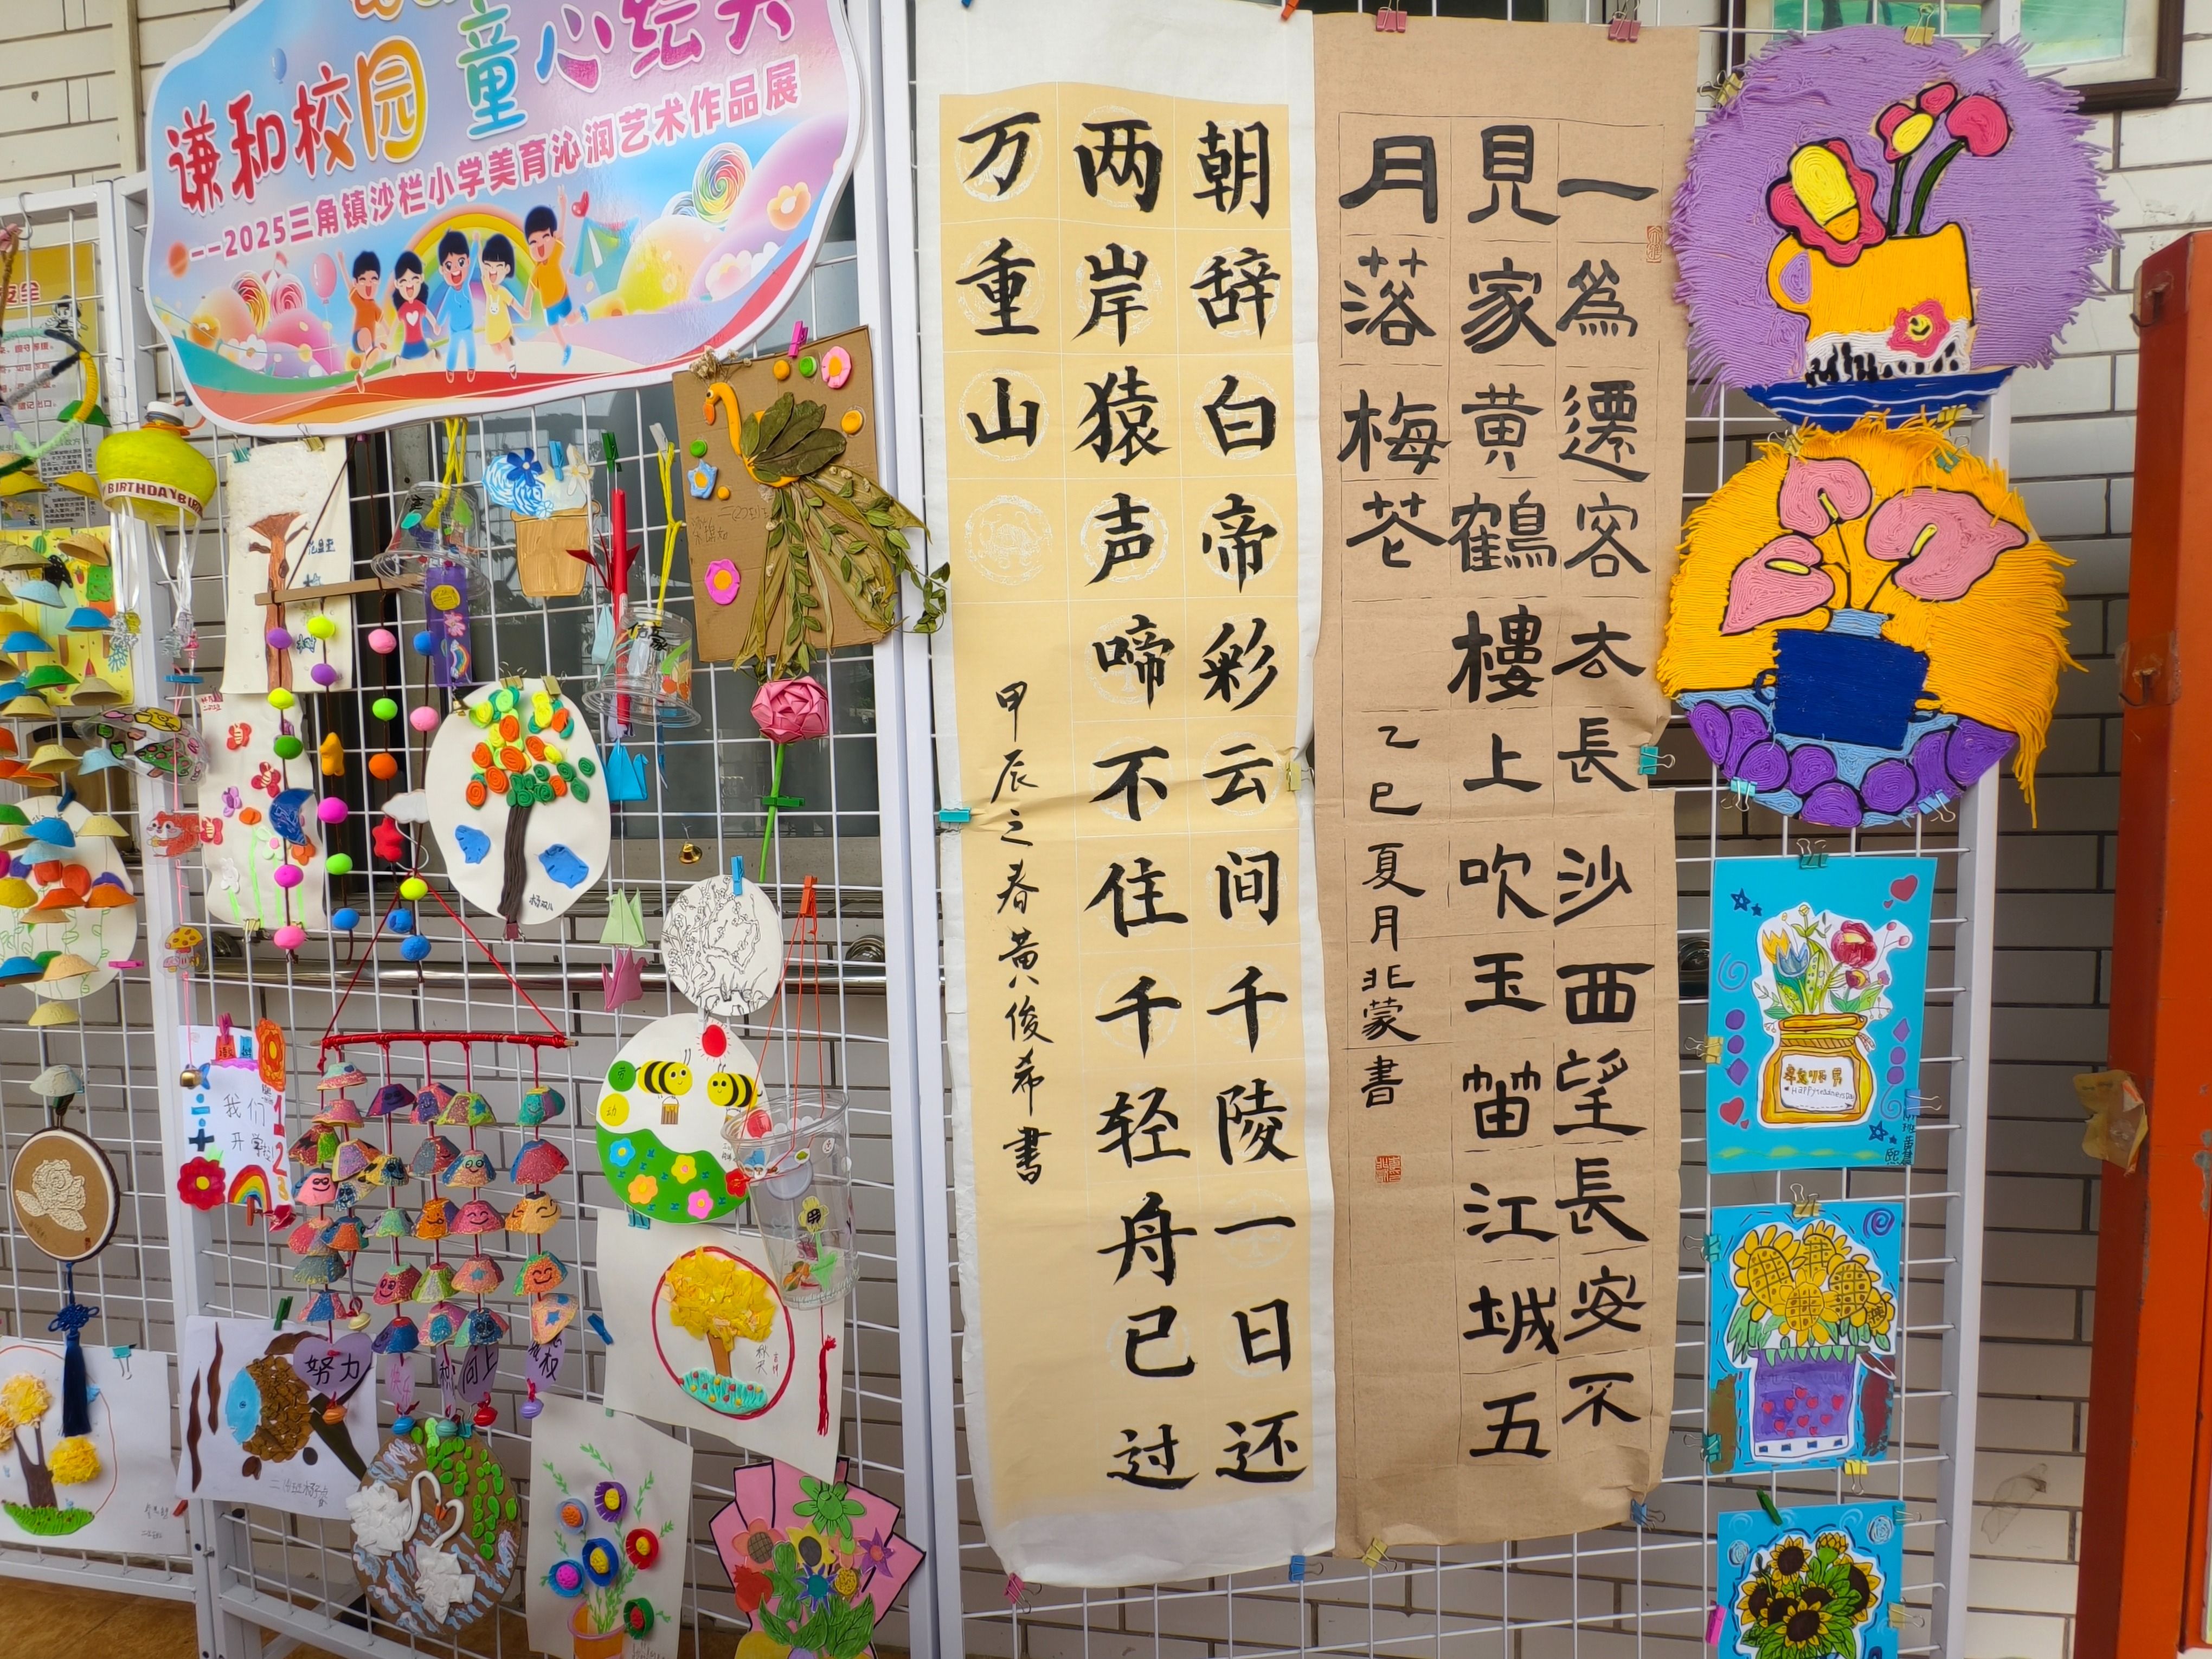 谦和校园 童心绘
——2025三角镇沙栏小学美育沁润艺术作品展
BIRTHDAY
朝辞白帝彩云间千陵一日还
两岸猿声啼不住千轻舟已过
万重山
甲辰之春黄俊希書
一為遷客去長沙西望長安不
見家黄鶴樓上吹玉笛江城五
月落梅花
乙巳夏月北蒙書
我们
开学
劳
动
努力
向上
秋天